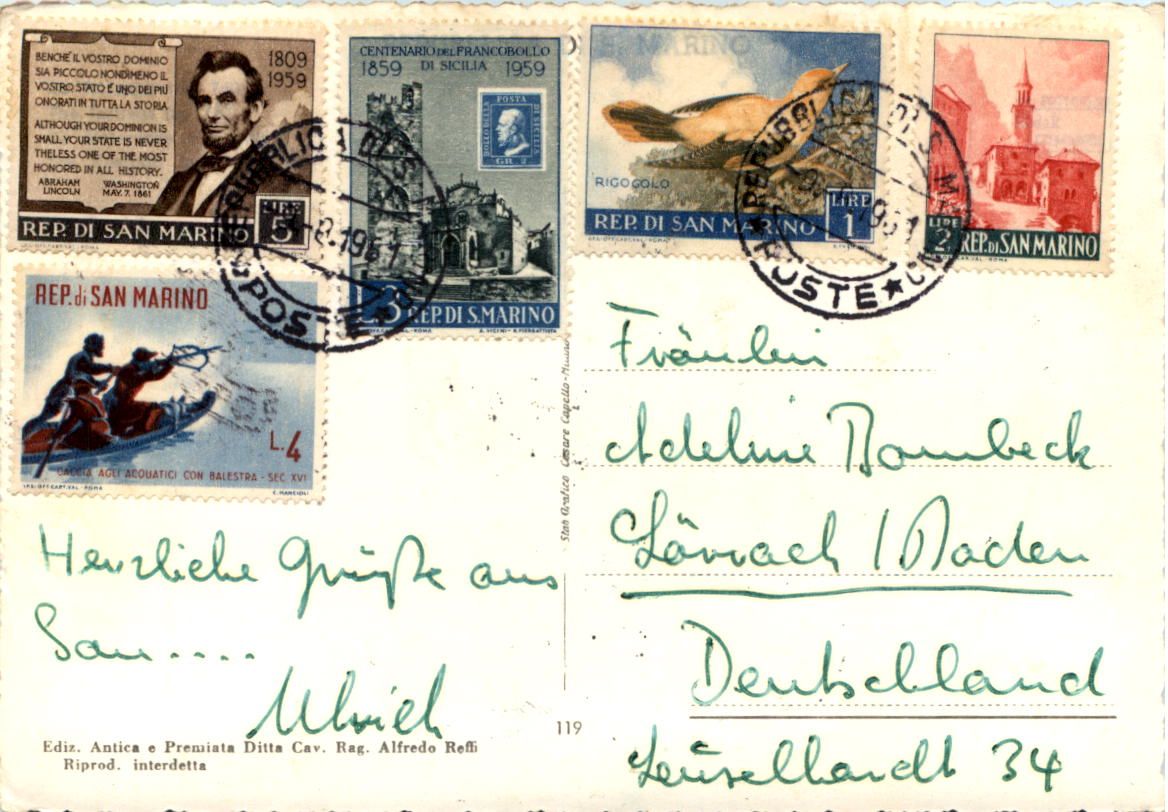 BENCHÈ IL VOSTRO DOMINIO
SIA PICCOLO NONDIMENO IL
VOSTRO STATO È UNO DEI PIÙ
ONORATI IN TUTTA LA STORIA
ALTHOUGH YOUR DOMINION IS
SMALL YOUR STATE IS NEVER
THELESS ONE OF THE MOST
HONORED IN ALL HISTORY.
ABRAHAM LINCOLN
WASHINGTON MAY. 7. 1861
1809
1959
LIRE 5
REP. DI SAN MARINO
CENTENARIO DEL FRANCOBOLLO
DI SICILIA
1859 1959
POSTA
BOLLO DELLA
DI SICILIA
GR 2
L.3 REP. DI S. MARINO
A. VICINI - R. PIERBATTISTA
RIGOGOLO
LIRE 1
REP. DI SAN MARINO
LIRE 2
REP. DI SAN MARINO
REPUBBLICA DI S.
POSTE
REPUBBLICA DI S. M
POSTE
REP. di SAN MARINO
L.4
CACCIA AGLI ACQUATICI CON BALESTRA - SEC XVI
IST. POL. CART. VAL. - ROMA
C. MANCIOLI
Herzliche Grüße aus
San ....
Ulrich
Ediz. Antica e Premiata Ditta Cav. Rag. Alfredo Reffi
Riprod. interdetta
119
Fräulein
Adeline Bombeck
Lörrach / Baden
Deutschland
34